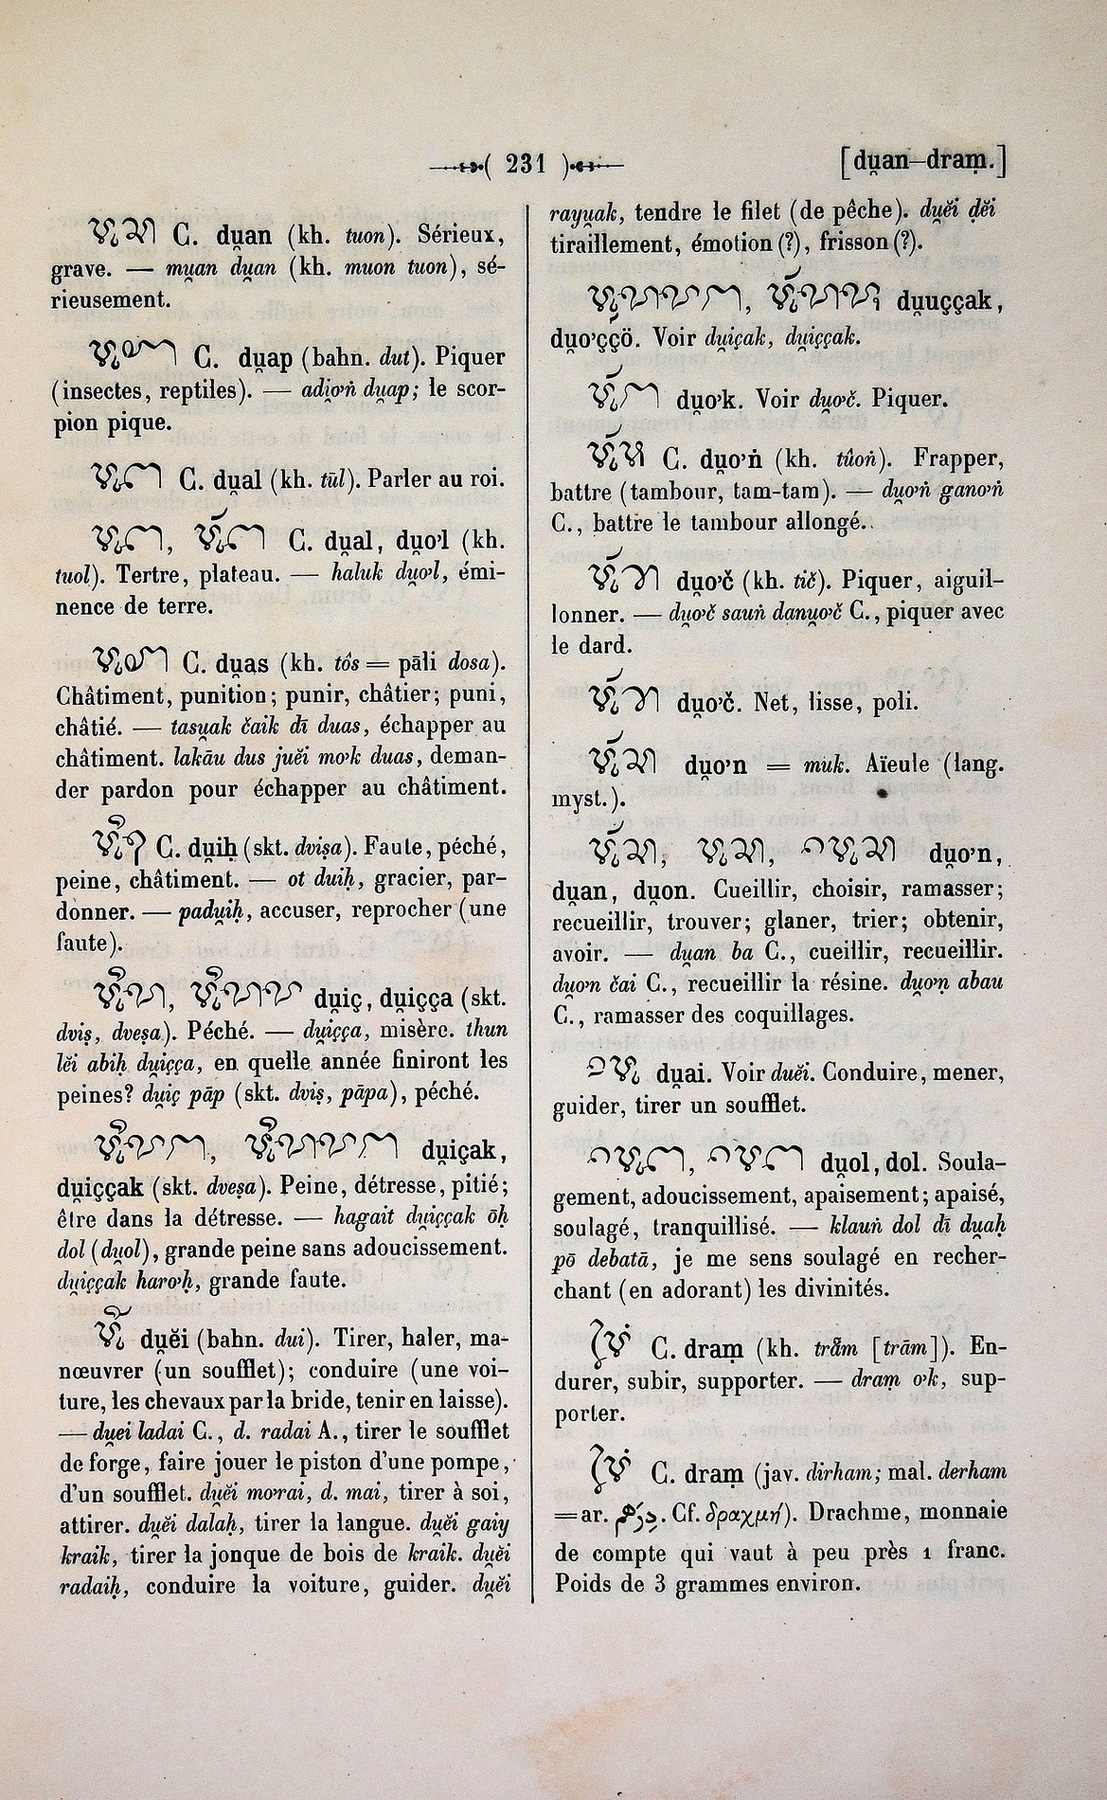 ( 231 )
[du̯an–draṃ.]
C. du̯an (kh. tuon). Sérieux,
grave. — mu̯an du̯an (kh. muon tuon), sé-
rieusement.
C. du̯ap (bahn. dut). Piquer
(insectes, reptiles). — adi̯o'ṅ du̯ap; le scor-
pion pique.
C. du̯al (kh. tūl). Parler au roi.
C. du̯al, du̯o'l (kh.
tuol). Tertre, plateau. — haluk du̯o'l, émi-
nence de terre.
C. du̯as (kh. tôs = pāli dosa).
Châtiment, punition; punir, châtier; puni,
châtié. — tasu̯ak čaik dī duas, échapper au
châtiment. lakāu dus juĕi mo'k duas, deman-
der pardon pour échapper au châtiment.
C. du̯iḥ (skt. dviṣa). Faute, péché,
peine, châtiment. — ot duiḥ, gracier, par-
donner. — padu̯iḥ, accuser, reprocher (une
faute).
du̯iç, du̯içça (skt.
dviṣ, dveṣa). Péché. — du̯içça, misère. thun
lĕi abiḥ du̯içça, en quelle année finiront les
peines? du̯iç pāp (skt. dviṣ, pāpa), péché.
du̯içak,
du̯iççak (skt. dveṣa). Peine, détresse, pitié;
être dans la détresse. — hagait du̯iççak ōḥ
dol (du̯ol), grande peine sans adoucissement.
du̯iççak haro'ḥ, grande faute.
du̯ĕi (bahn. dui). Tirer, haler, ma-
nœuvrer (un soufflet); conduire (une voi-
ture, les chevaux par la bride, tenir en laisse).
— du̯ei ladai C., d. radai A., tirer le soufflet
de forge, faire jouer le piston d'une pompe,
d'un soufflet. du̯ĕi mo'rai, d. mai, tirer à soi,
attirer. du̯ĕi dalaḥ, tirer la langue. du̯ĕi gaiy
kraik, tirer la jonque de bois de kraik. du̯ĕi
radaiḥ, conduire la voiture, guider. du̯ĕi
rayu̯ak, tendre le filet (de pêche). du̯ĕi ḍĕi
tiraillement, émotion (?), frisson (?).
du̯uççak,
du̯o'ççö. Voir du̯içak, du̯iççak.
du̯o'k. Voir du̯o'č. Piquer.
C. du̯o'ṅ (kh. tûoṅ). Frapper,
battre (tambour, tam-tam). — du̯o'ṅ gano'ṅ
C., battre le tambour allongé.
du̯o'č (kh. tič). Piquer, aiguil-
lonner. — du̯o'č sauṅ danu̯o'č C., piquer avec
le dard.
du̯o'č. Net, lisse, poli.
du̯o'n = muk. Aïeule (lang.
myst.).
du̯o'n,
du̯an, du̯on. Cueillir, choisir, ramasser;
recueillir, trouver; glaner, trier; obtenir,
avoir. — du̯an ba C., cueillir, recueillir.
du̯o'n čai C., recueillir la résine. du̯o'n abau
C., ramasser des coquillages.
du̯ai. Voir duĕi. Conduire, mener,
guider, tirer un soufflet.
du̯ol, dol. Soula-
gement, adoucissement, apaisement; apaisé,
soulagé, tranquillisé. — klauṅ dol dī du̯aḥ
pō debatā, je me sens soulagé en recher-
chant (en adorant) les divinités.
C. draṃ (kh. trăm [trām]). En-
durer, subir, supporter. — draṃ o'k, sup-
porter.
C. draṃ (jav. dirham; mal. derham
= ar. درهم. Cf. δραχμή). Drachme, monnaie
de compte qui vaut à peu près 1 franc.
Poids de 3 grammes environ.